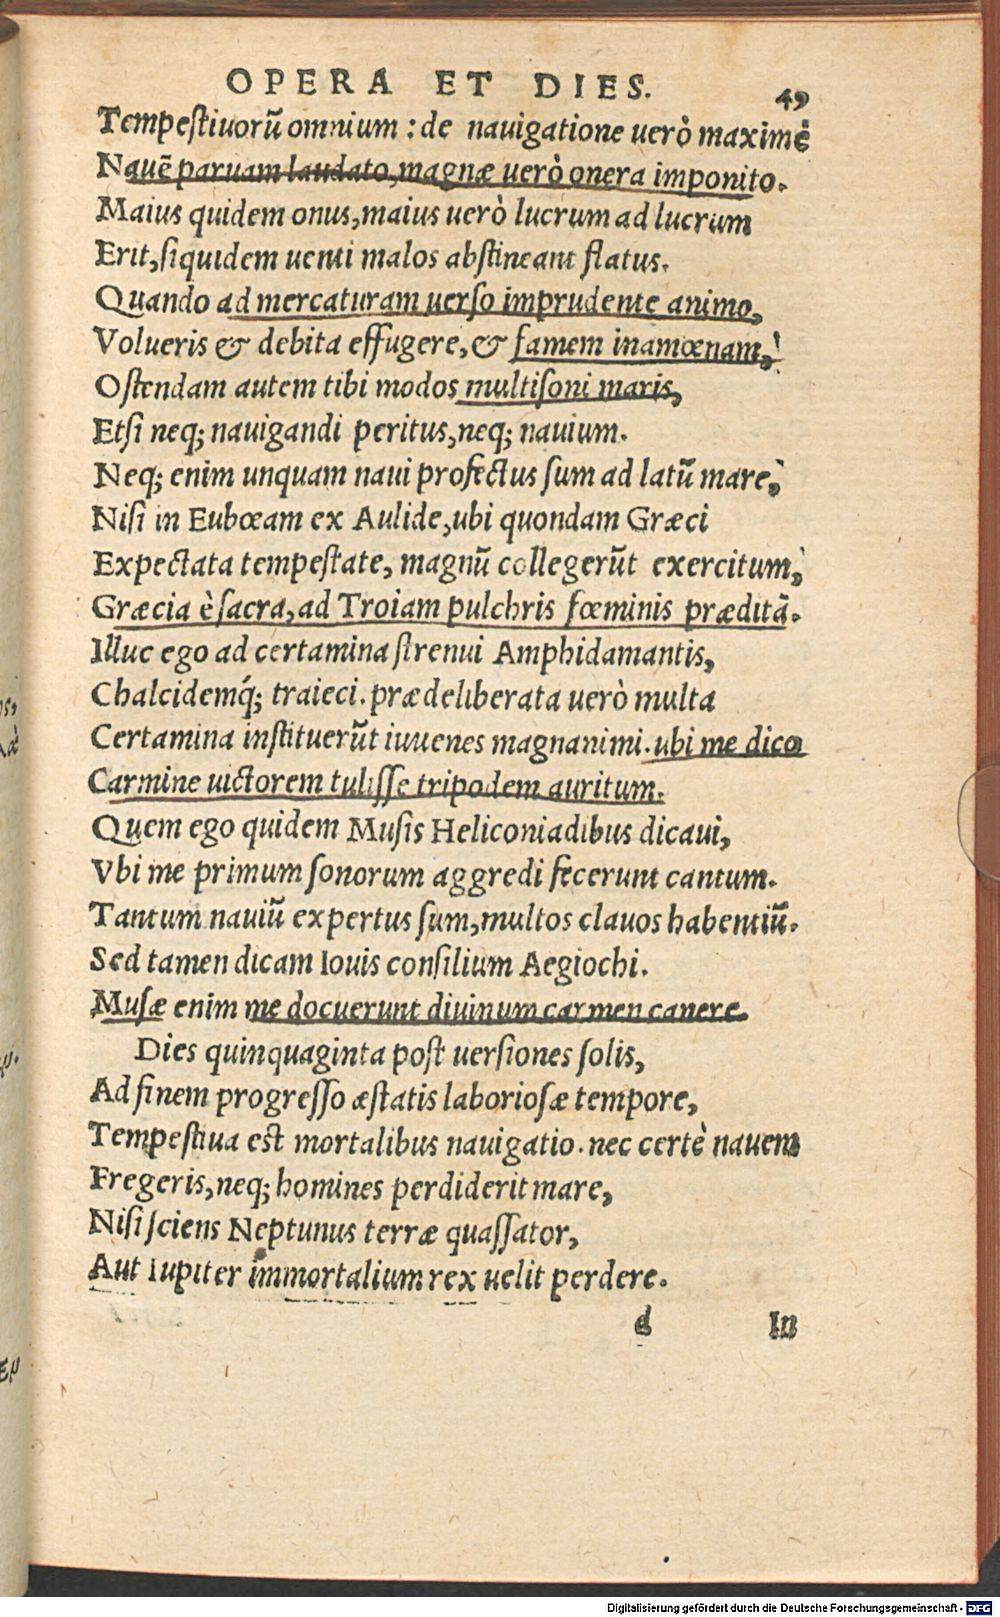 OPERA ET DIES. 49
Tempeſtiuorū omnium : de nauigatione uerò maximè
Nauē paruam laudato, magnæ uerò onera imponito.
Maius quidem onus, maius uerò lucrum ad lucrum
Erit, ſiquidem uenti malos abſtineant flatus.
Quando ad mercaturam uerſo imprudente animo,
Volueris & debita effugere, & famem inamœnam,
Oſtendam autem tibi modos multiſoni maris,
Etſi neq; nauigandi peritus, neq; nauium.
Neq; enim unquam naui profectus ſum ad latū mare,
Niſi in Eubœam ex Aulide, ubi quondam Græci
Expectata tempeſtate, magnū collegerūt exercitum,
Græcia è ſacra, ad Troiam pulchris fœminis præditā.
Illuc ego ad certamina ſtrenui Amphidamantis,
Chalcidemq́; traieci. prædeliberata uerò multa
Certamina inſtituerūt iuuenes magnanimi. ubi me dico
Carmine uictorem tuliſſe tripodem auritum.
Quem ego quidem Muſis Heliconiadibus dicaui,
Vbi me primum ſonorum aggredi fecerunt cantum.
Tantum nauiū expertus ſum, multos clauos habentiū.
Sed tamen dicam Iouis conſilium Aegiochi.
Muſæ enim me docuerunt diuinum carmen canere.
Dies quinquaginta poſt uerſiones ſolis,
Ad finem progreſſo æſtatis laborioſæ tempore,
Tempeſtiua eſt mortalibus nauigatio. nec certè nauem
Fregeris, neq; homines perdiderit mare,
Niſi ſciens Neptunus terræ quaſſator,
Aut Iupiter immortalium rex uelit perdere.
d In
Digitalisierung gefördert durch die Deutsche Forschungsgemeinschaft - DFG